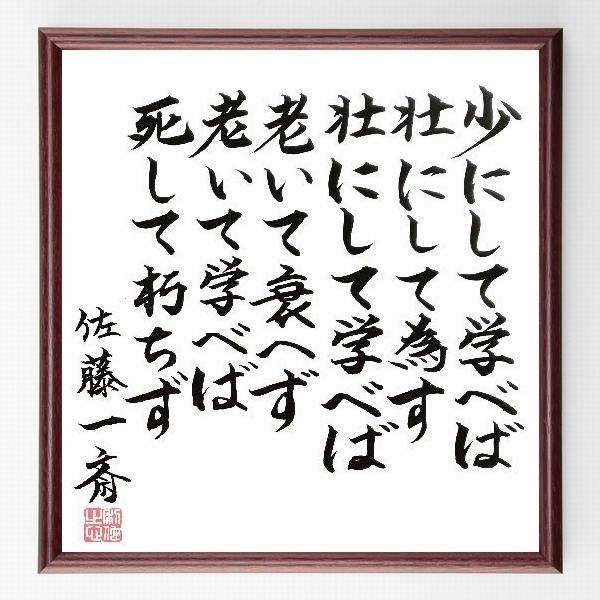 少にして学べば
壮にして為す
壮にして学べば
老いて衰へず
老いて学べば
死して朽ちず
佐藤一斎